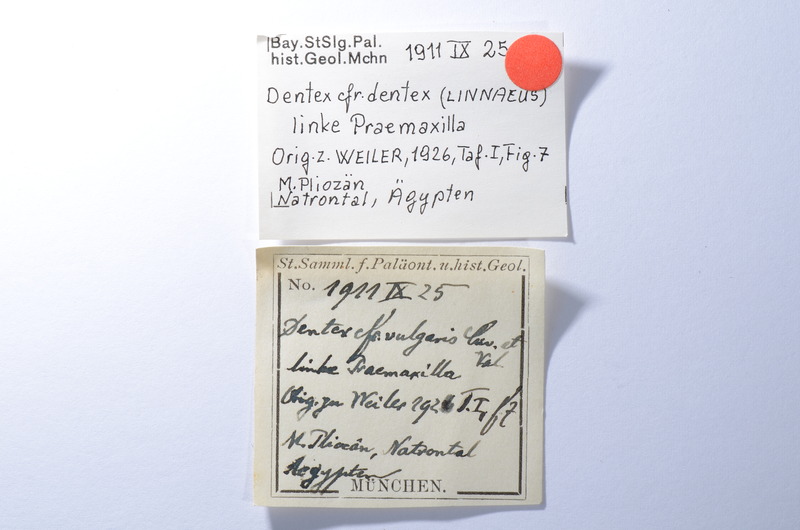 Bay.StSlg.Pal.
hist.Geol.Mchn 1911 IX 25
Dentex cfr. dentex (LINNAEUS)
linke Praemaxilla
Orig. z. WEILER, 1926, Taf. I, Fig. 7
M. Pliozän
Natrontal, Ägypten
St. Samml. f. Paläont. u. hist. Geol.
No. 1911 IX 25
Dentex cfr. vulgaris Cuv. et
Val
linke Praemaxilla
Orig. zu Weiler 1926 T. I, f 7
M. Pliocän, Natrontal
Aegypten
MÜNCHEN.